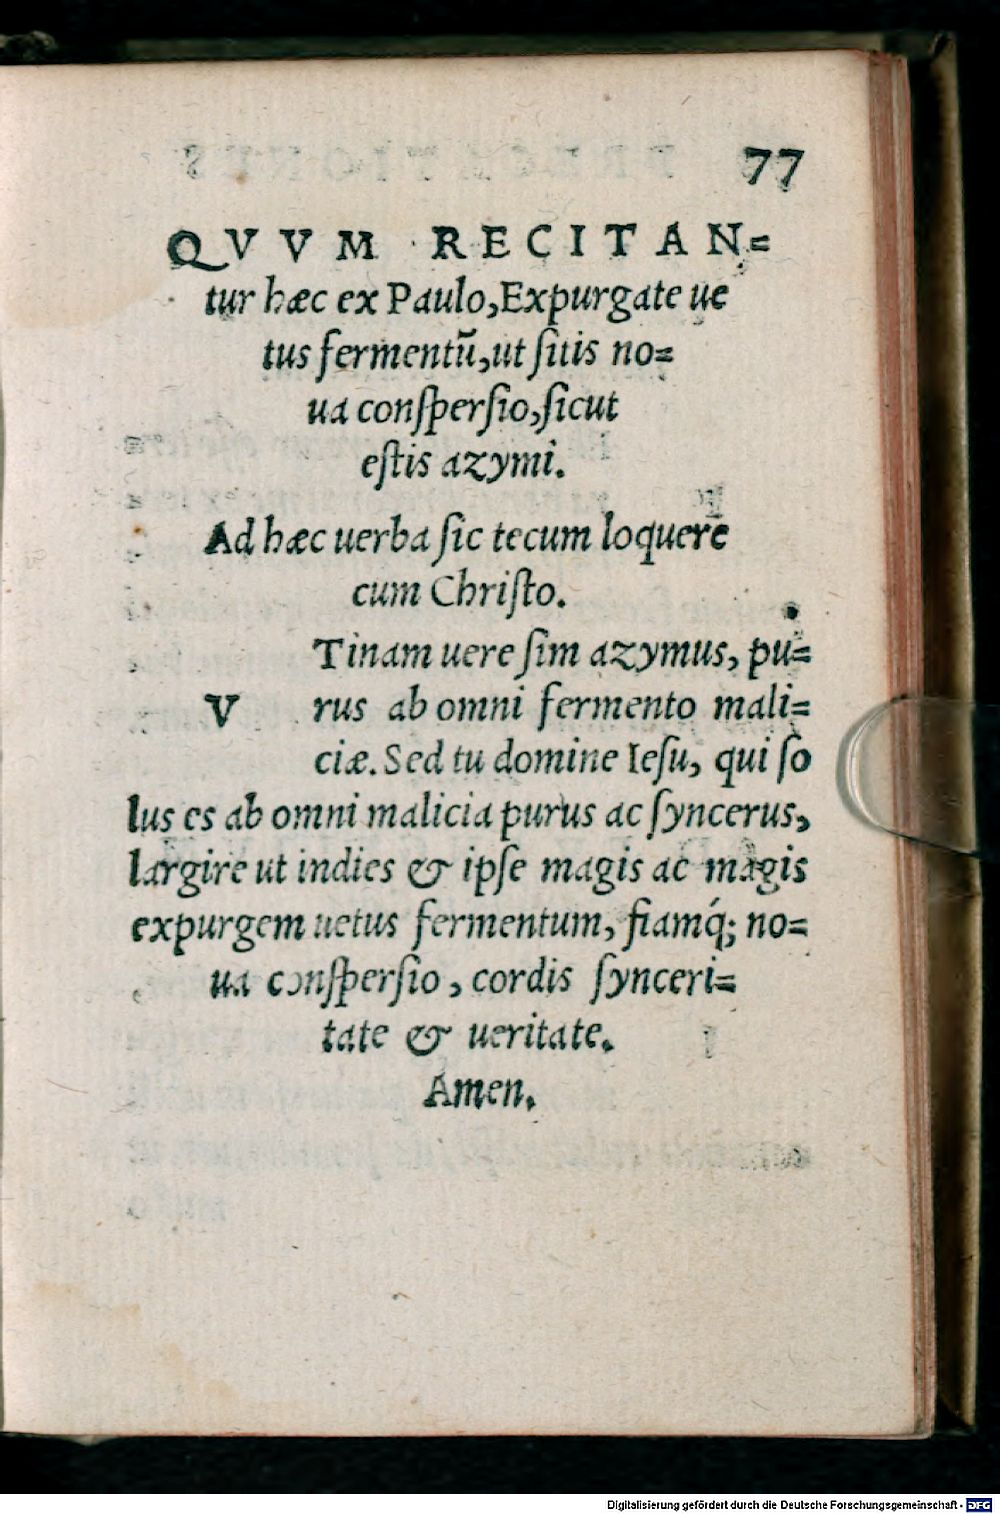 77
QVVM RECITAN=
tur hæc ex Paulo,Expurgate ue
tus fermentũ,ut ſitis no=
ua conſperſio,ſicut
eſtis azymi.
Ad hæc uerba ſic tecum loquere
cum Chriſto.
V Tinam uere ſim azymus, pu=
rus ab omni fermento mali=
ciæ. Sed tu domine Ieſu, qui ſo
lus es ab omni malicia purus ac ſyncerus,
largire ut indies & ipſe magis ac magis
expurgem uetus fermentum, fiamq́; no=
ua conſperſio, cordis ſynceri=
tate & ueritate.
Amen.
Digitalisierung gefördert durch die Deutsche Forschungsgemeinschaft - DFG